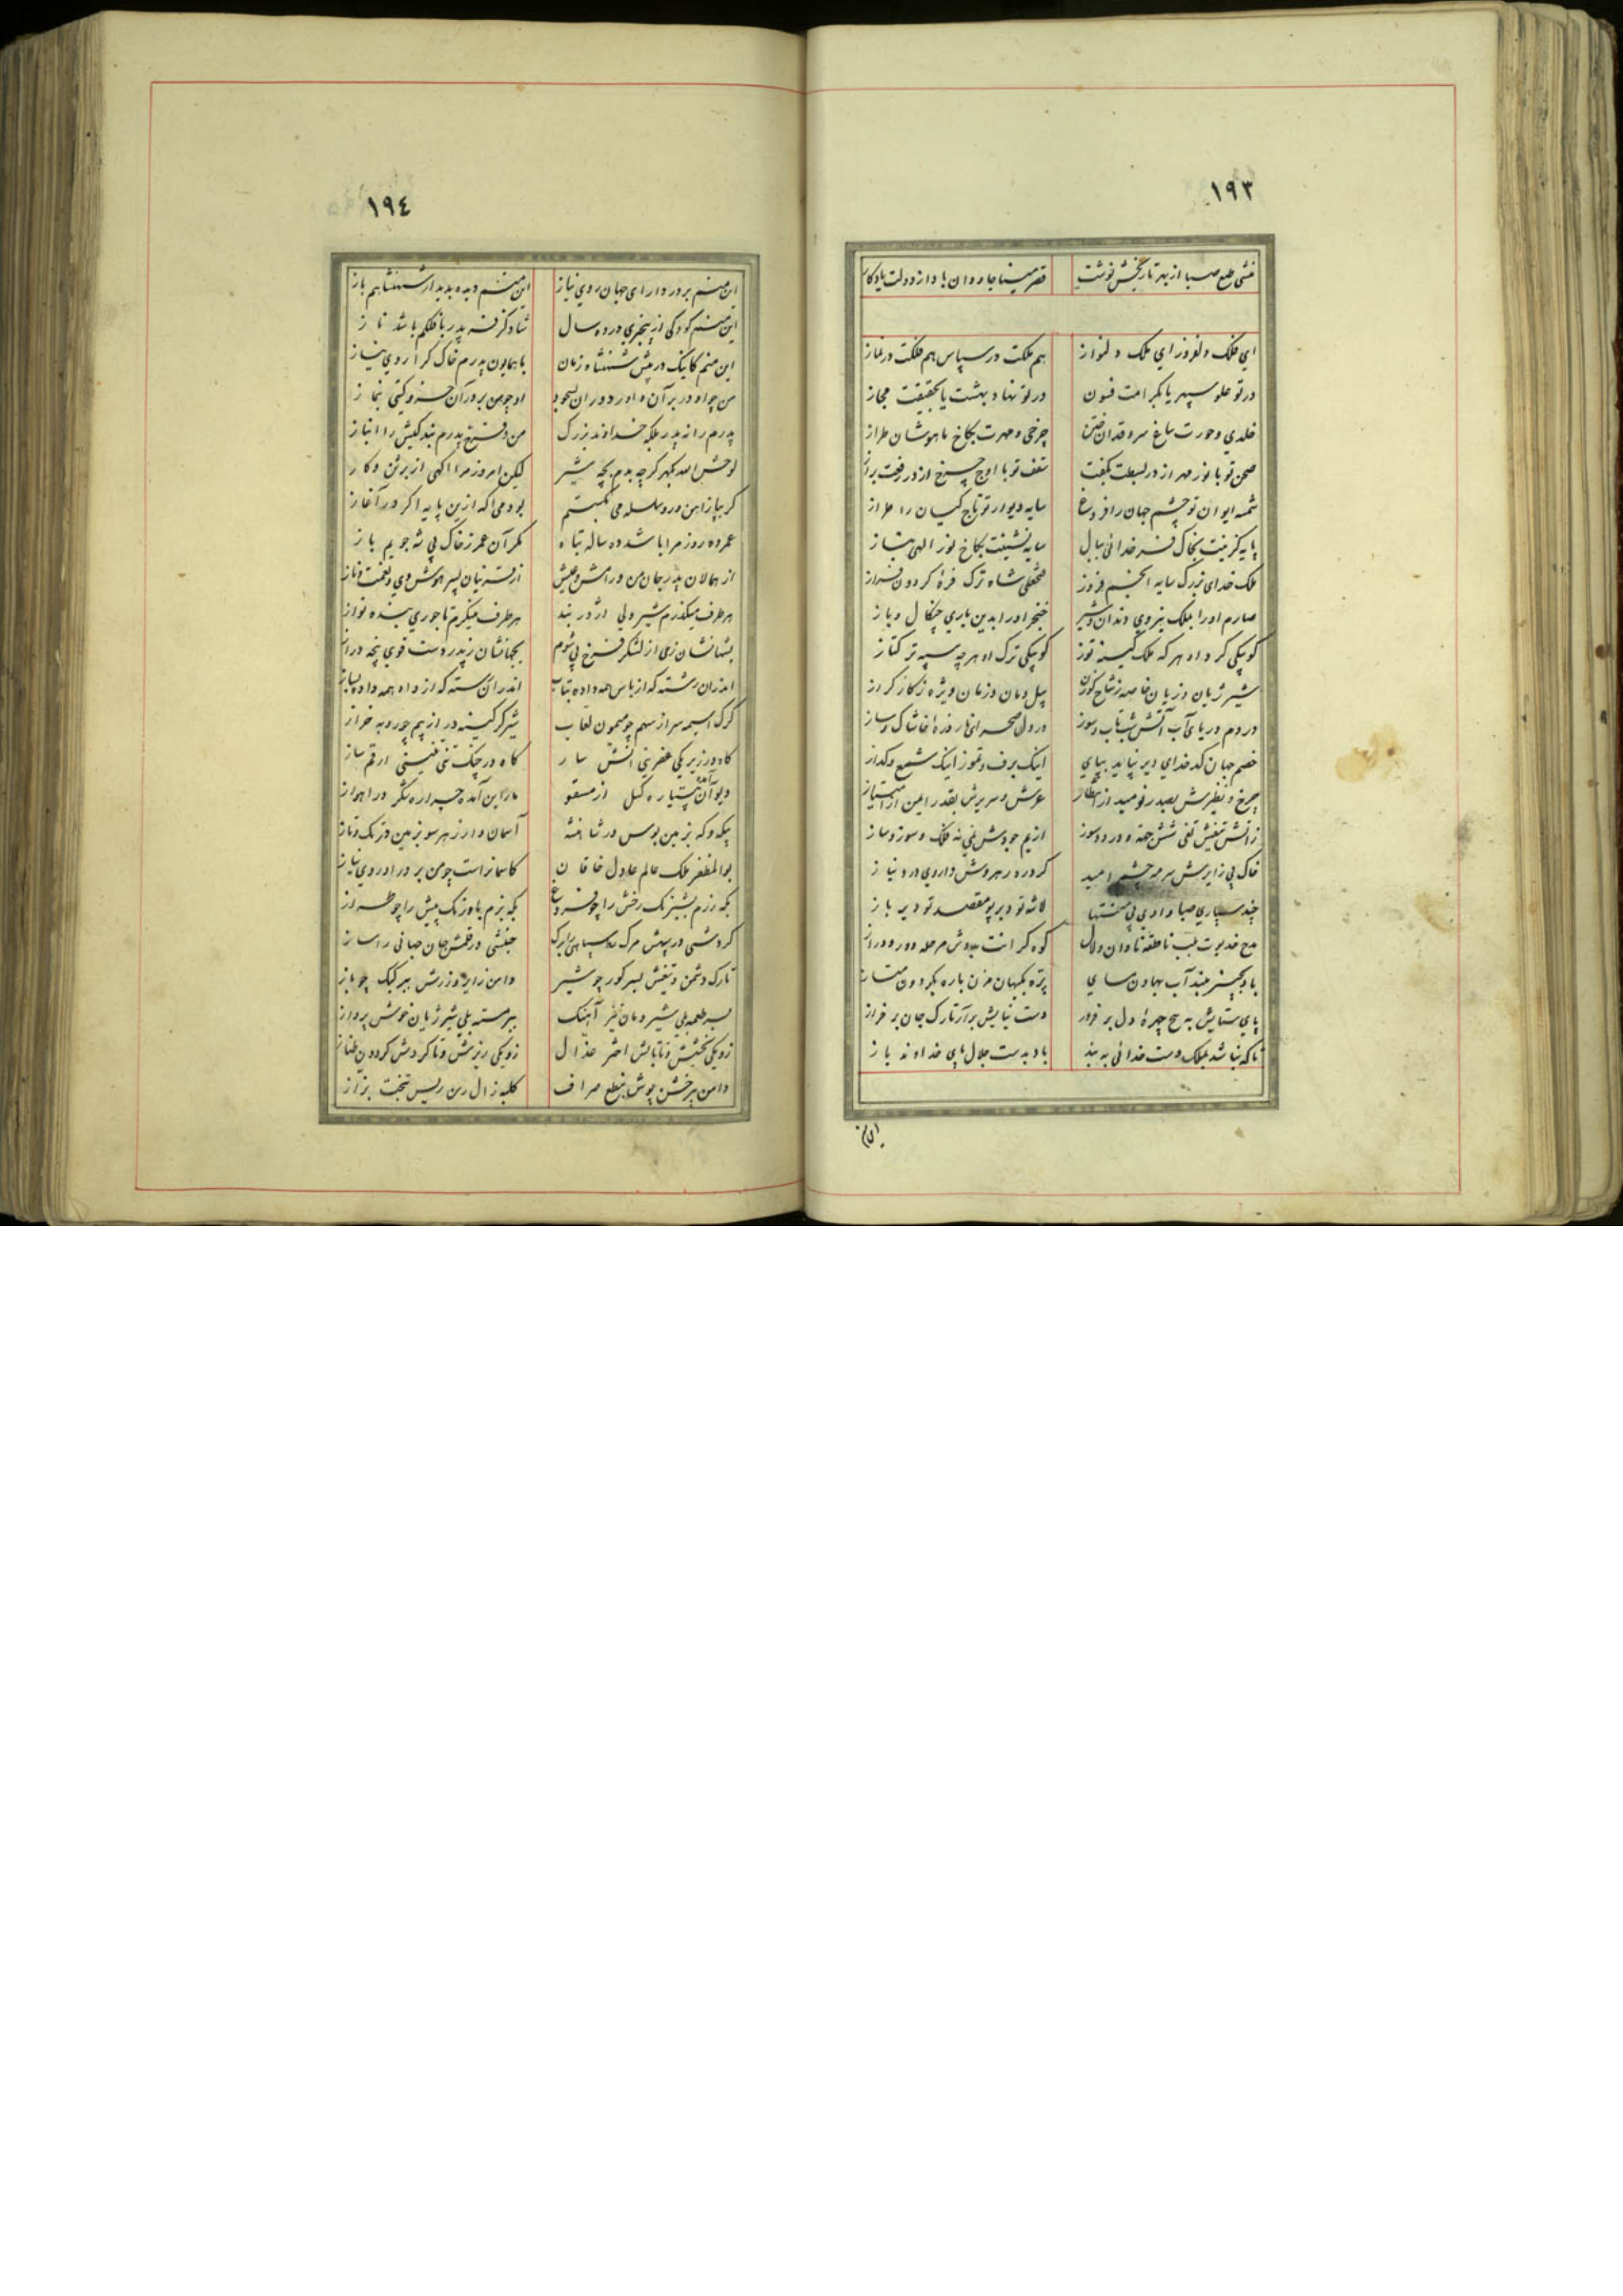 ١٩٣
منشی طبع صبا از بهر تاریخش نوشت قصر مینا جاودان با دا ز دولت یادکار
ای فلک ولفروز ای ملک دلنواز هم ملکت در سپاس هم فلکت در نماز
در تو علو سپهر یا بکرامت فسون در تو نهاد بهشت یا بحقیقت مجاز
خلدی و حورت بباغ سرو قدان ختن چرخی و مهرت بکاخ ماهوشان طراز
صحن تو با نور مهر از در بسطت بکفت سقف تو با اوج چرخ از در رفعت براز
شمسه ایوان تو چشم جهان را فروغ سایه دیوار تو تاج کیان را طراز
پایه کزینت بخاک فر خدائی ببال سایه نشینت بکاخ نور الهی بناز
ملک خدای بزرک سایه انجم فروز فتحعلی شاه ترک فره کردون فراز
صارم او را بملک نیروی دندان شیر خنجر او را بدین یاری چنکال و باز
کوپیکی کرد او هر که ملک کینه توز کوپیکی ترک او هر چه سپه ترکتاز
شیر ژیان و زیان خاصه ز شاخ کوزن پیل دمان و زمان ویژه ز کاز کراز
در دم دریای آب آتش شبتاب و سوز در دل صحرای نار خاشاک و ساز
خصم جهان کدخدای دیر نپاید بپای اینک برف و تموز اینک شمع و کداز
چرخ و نظیرش بصد رنومید از انتظار عرش و سریرش بقدر ایمن از امتیاز
زآتش تیغش تفی شش جهة و درد و سوز از یم جودش نمی نه فلک و سوز و ساز
خاک پی زایرش سرمه چشم امید کرد ره رهروش داروی درد نیاز
چند سپاری صبا وادی بی منتها لاشه تو دیر پو مقصد تو دیر باز
مدح خدیوت بلب ناطقه نادان و لال کوه کرانت بدوش مرحله دور و دراز
باد بچنبر مبند آب بهاون مسای پره بکیهان مزن باره بکردون متاز
پای ستایش به هیچ چهره دل بر فروز دست نیایش برآر تارک جان بر فراز
تا که نباشد بملک دست خدائی به بند باد بدست جلال پای خداوند باز
این
١٩٤
این منم بر در دارای جهان روی نیاز این منم دیده بدیدار شهنشاهم باز
این منم کودکی از پنجری در ده سال شاد کز فر پدر با فلکم باشد ناز
این منم کاینک در پیش شهنشاه زمان با همایون پدرم خاک کرا روی نیاز
من چو او در بر آن داور دوران بسجود او چو من بر در آن خسرو کیتی بنماز
پدرم را نه پدر بلکه خداوند بزرک من و فرخ پدرم بندکیش را انباز
لوحش الله بکهر کرچه بدم بچه شیر لیکن امروز مرا آکهی از برتن و کار
کر بپا ز آهن در سلسله می بکسستم بودمی آکه ازین پایه اکر در آغاز
عمر ده روز مرا باشد ده ساله تباه مکر آن عمر ز خاک پی شه جویم باز
از همالان پدر جان من و رامش و عیش از قرینان پسر هوش وی و نعمت و ناز
هر طرف میکذرم شیردلی اژدر بند هر طرف مینکرم تاجوری بنده نواز
بشهانشان ز نی از لشکر فرخ پی شوم بجهانشان ز پدر دست قوی پنجه دراز
اندران رشته که از باس همه داده بتاب اندر آن رسته که از داد همه داده بساز
کرک آسیمه سر از سهم چو میمون لعاب شیر کرکینه در از بیم چو روبه خراز
کاه در زیر یکی عفرنی آتش سار کاه در چنک تنی تنینی ارقم ساز
دیو آن آمده پتیاره کسل از مسقو مار این آمده جراره شکر در اهواز
یکه و که بزمین بوس در شاهنشه آسمان وار ز هر سو بزمین در تک و تاز
بوالمظفر ملک عالم عادل خاقان کاسمانراست چو من بر در او روی نیاز
بکه رزم بشبرنک رخش را چو فروغ بکه بزم باورنک پیش را چو طراز
کردشی در پیش مرک سپاهی را برک جنبشی در قلمش جان جهانی را ساز
تارک دشمن و تیغش بسر کور چو شیر دامن زایر و زرش ببر کبک چو باز
بسر طعمه پی شیر دمان تیز آهنک ببر مسته پی شیر ژیان خوش پرواز
زو یکی بخشش و تابابش اختر عذال زو یکی ریزش و تا کردش کردون طناز
دامن پر خشن پوش بنطع صراف کلبه زال رسن ریس بتخت بزاز